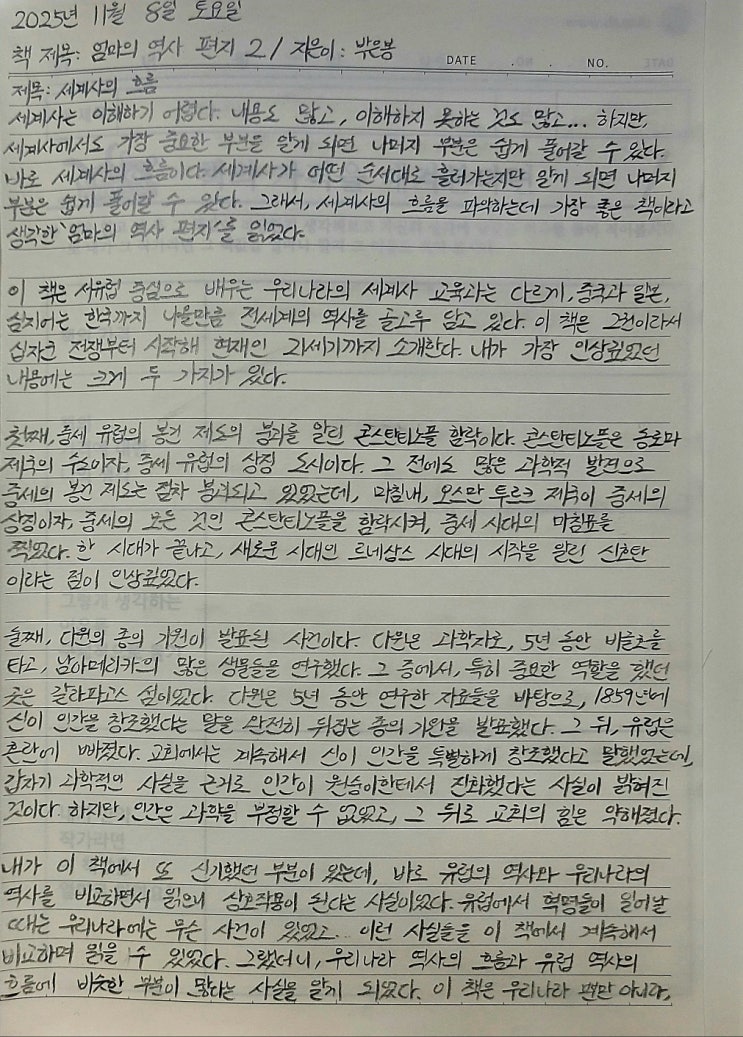 2025년 11월 8일 토요일
책 제목: 엄마의 역사 편지 2 / 지은이: 박은봉
DATE . . NO.
제목: 세계사의 흐름
세계사는 이해하기 어렵다. 내용도 많고, 이해하지 못하는 것도 많고... 하지만,
세계사에서도 가장 중요한 부분을 알게 되면 나머지 부분은 쉽게 풀어갈 수 있다.
바로 세계사의 흐름이다. 세계사가 어떤 순서대로 흘러가는지만 알게 되면 나머지
부분은 쉽게 풀어갈 수 있다. 그래서, 세계사의 흐름을 파악하는데 가장 좋은 책이라고
생각한 '엄마의 역사 편지'를 읽었다.
이 책은 서유럽 중심으로 배우는 우리나라의 세계사 교육과는 다르게, 중국과 일본,
심지어는 한국까지 나올만큼 전세계의 역사를 골고루 담고 있다. 이 책은 그전이라서
십자군 전쟁부터 시작해 현재인 21세기까지 소개한다. 내가 가장 인상깊었던
내용에는 크게 두 가지가 있다.
첫째, 중세 유럽의 봉건 제도의 붕괴를 알린 콘스탄티노플 함락이다. 콘스탄티노플은 동로마
제국의 수도이자, 중세 유럽의 상징 도시이다. 그 전에도 많은 과학적 발견으로
중세의 봉건 제도는 점차 붕괴되고 있었는데, 마침내, 오스만 투르크 제국이 중세의
상징이자, 중세의 모든 것인 콘스탄티노플을 함락시켜, 중세 시대의 마침표를
찍었다. 한 시대가 끝나고, 새로운 시대인 르네상스 시대의 시작을 알린 신호탄
이라는 점이 인상깊었다.
둘째, 다윈의 종의 기원이 발표된 사건이다. 다윈은 과학자로, 5년 동안 비글호를
타고, 남아메리카의 많은 생물들을 연구했다. 그 중에서, 특히 중요한 역할을 했던
곳은 갈라파고스 섬이었다. 다윈은 5년 동안 연구한 자료들을 바탕으로, 1859년에
신이 인간을 창조했다는 말을 완전히 뒤집는 종의 기원을 발표했다. 그 뒤, 유럽은
혼란에 빠졌다. 교회에서는 계속해서 신이 인간을 특별하게 창조했다고 말했었는데,
갑자기 과학적인 사실을 근거로 인간이 원숭이한테서 진화했다는 사실이 밝혀진
것이다. 하지만, 인간은 과학을 부정할 수 없었고, 그 뒤로 교회의 힘은 약해졌다.
내가 이 책에서 또 신기했던 부분이 있는데, 바로 유럽의 역사와 우리나라의
역사를 비교하면서 읽으니 상호작용이 된다는 사실이었다. 유럽에서 혁명들이 일어날
때는 우리나라에는 무슨 사건이 있었고... 이런 사실들을 이 책에서 계속해서
비교하며 읽을 수 있었다. 그랬더니, 우리나라 역사의 흐름과 유럽 역사의
흐름에 비슷한 부분이 많다는 사실을 알게 되었다. 이 책은 우리나라 뿐만 아니라,